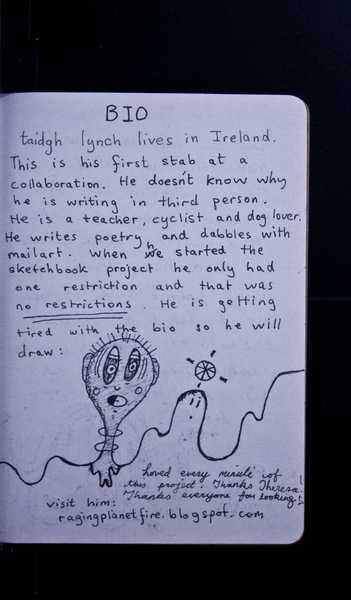 BIO
taidgh lynch lives in Ireland.
This is his first stab at a
collaboration. He doesn't know why
he is writing in third person.
He is a teacher, cyclist and dog lover.
He writes poetry and dabbles with
mailart. When he started the
sketchbook project he only had
one restriction and that was
no restrictions. He is getting
tired with the bio so he will
draw:
Loved every minute of
this project. Thanks Theresa!
Thanks everyone for looking!
visit him:
ragingplanetfire.blogspot.com